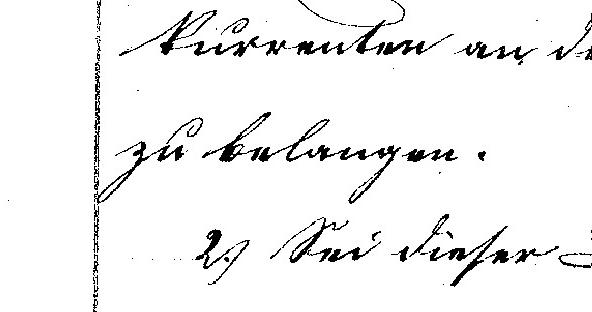 kurrenten an
zu belangen.
2.) Sei dieser